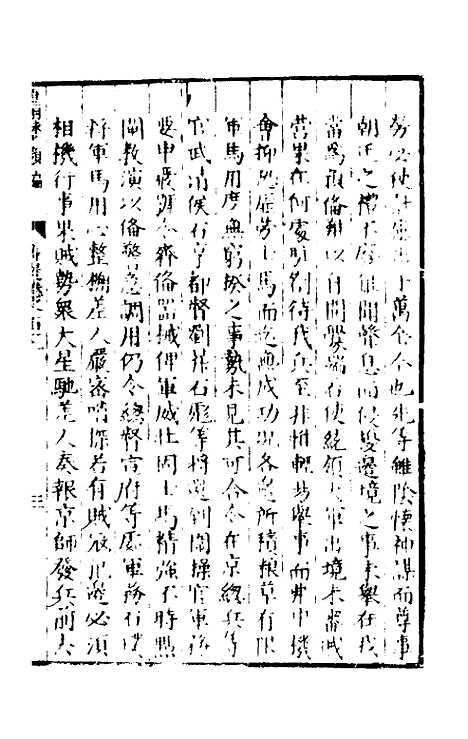 勞必使計出萬全今也先等雖陰懷神謀而尊事
朝廷之禮不廢雖聞聲息而侵擾邊境之事未舉在我
當為預備難以自開釁端若使統領大軍出境未審賊
營果在何處駐劄待我兵至非惟輕易舉事而弗中機
會抑恐勞士馬而無成功況各邊所積糧草有限
軍馬用度無窮揆之事勢未見其可合令在京總兵等
官武清侯石亨都督劉石彪等將選到團操官軍務
要申嚴號令齊備器械俾軍威壯固士馬精強不時點
閘教演以備警急調用仍令總督宣府等處軍務石璞
將軍馬用心整搠差人嚴密哨探若有賊寇犯邊必須
相機行事果賊勢眾大星馳差人奏報京師發兵前去